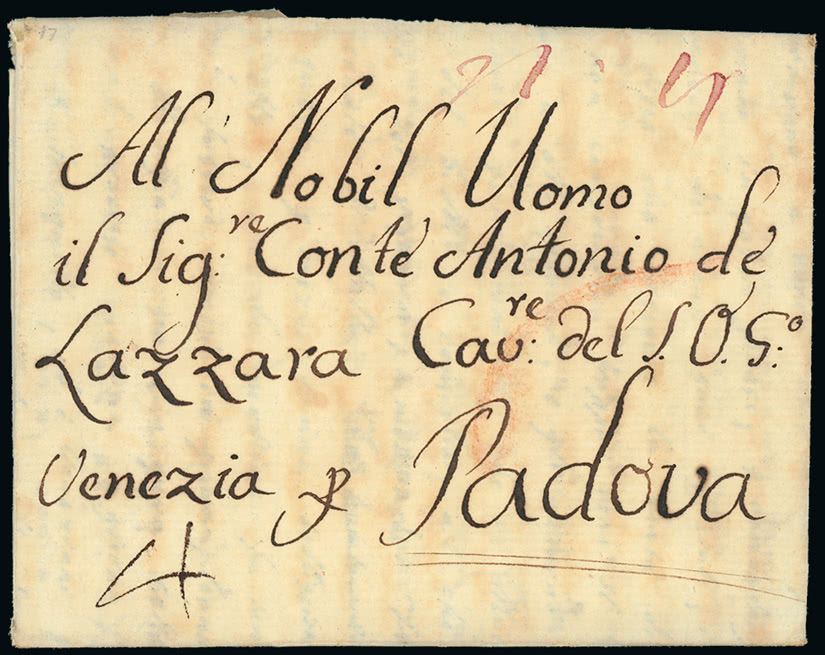 Al Nobil Uomo
il Sig:re Conte Antonio de
Lazzara Cav:re del S. O. G:o
Venezia p Padova
4